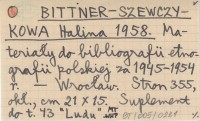 BITTNER-SZEWCZY-
KOWA Halina 1958. Ma-
teriały do bibliografii etno-
grafii polskiej za 1945-1954
r. — Wrocław. Stron 355,
okł., cm 21 x 15. Suplement
do t. 43 "Ludu"